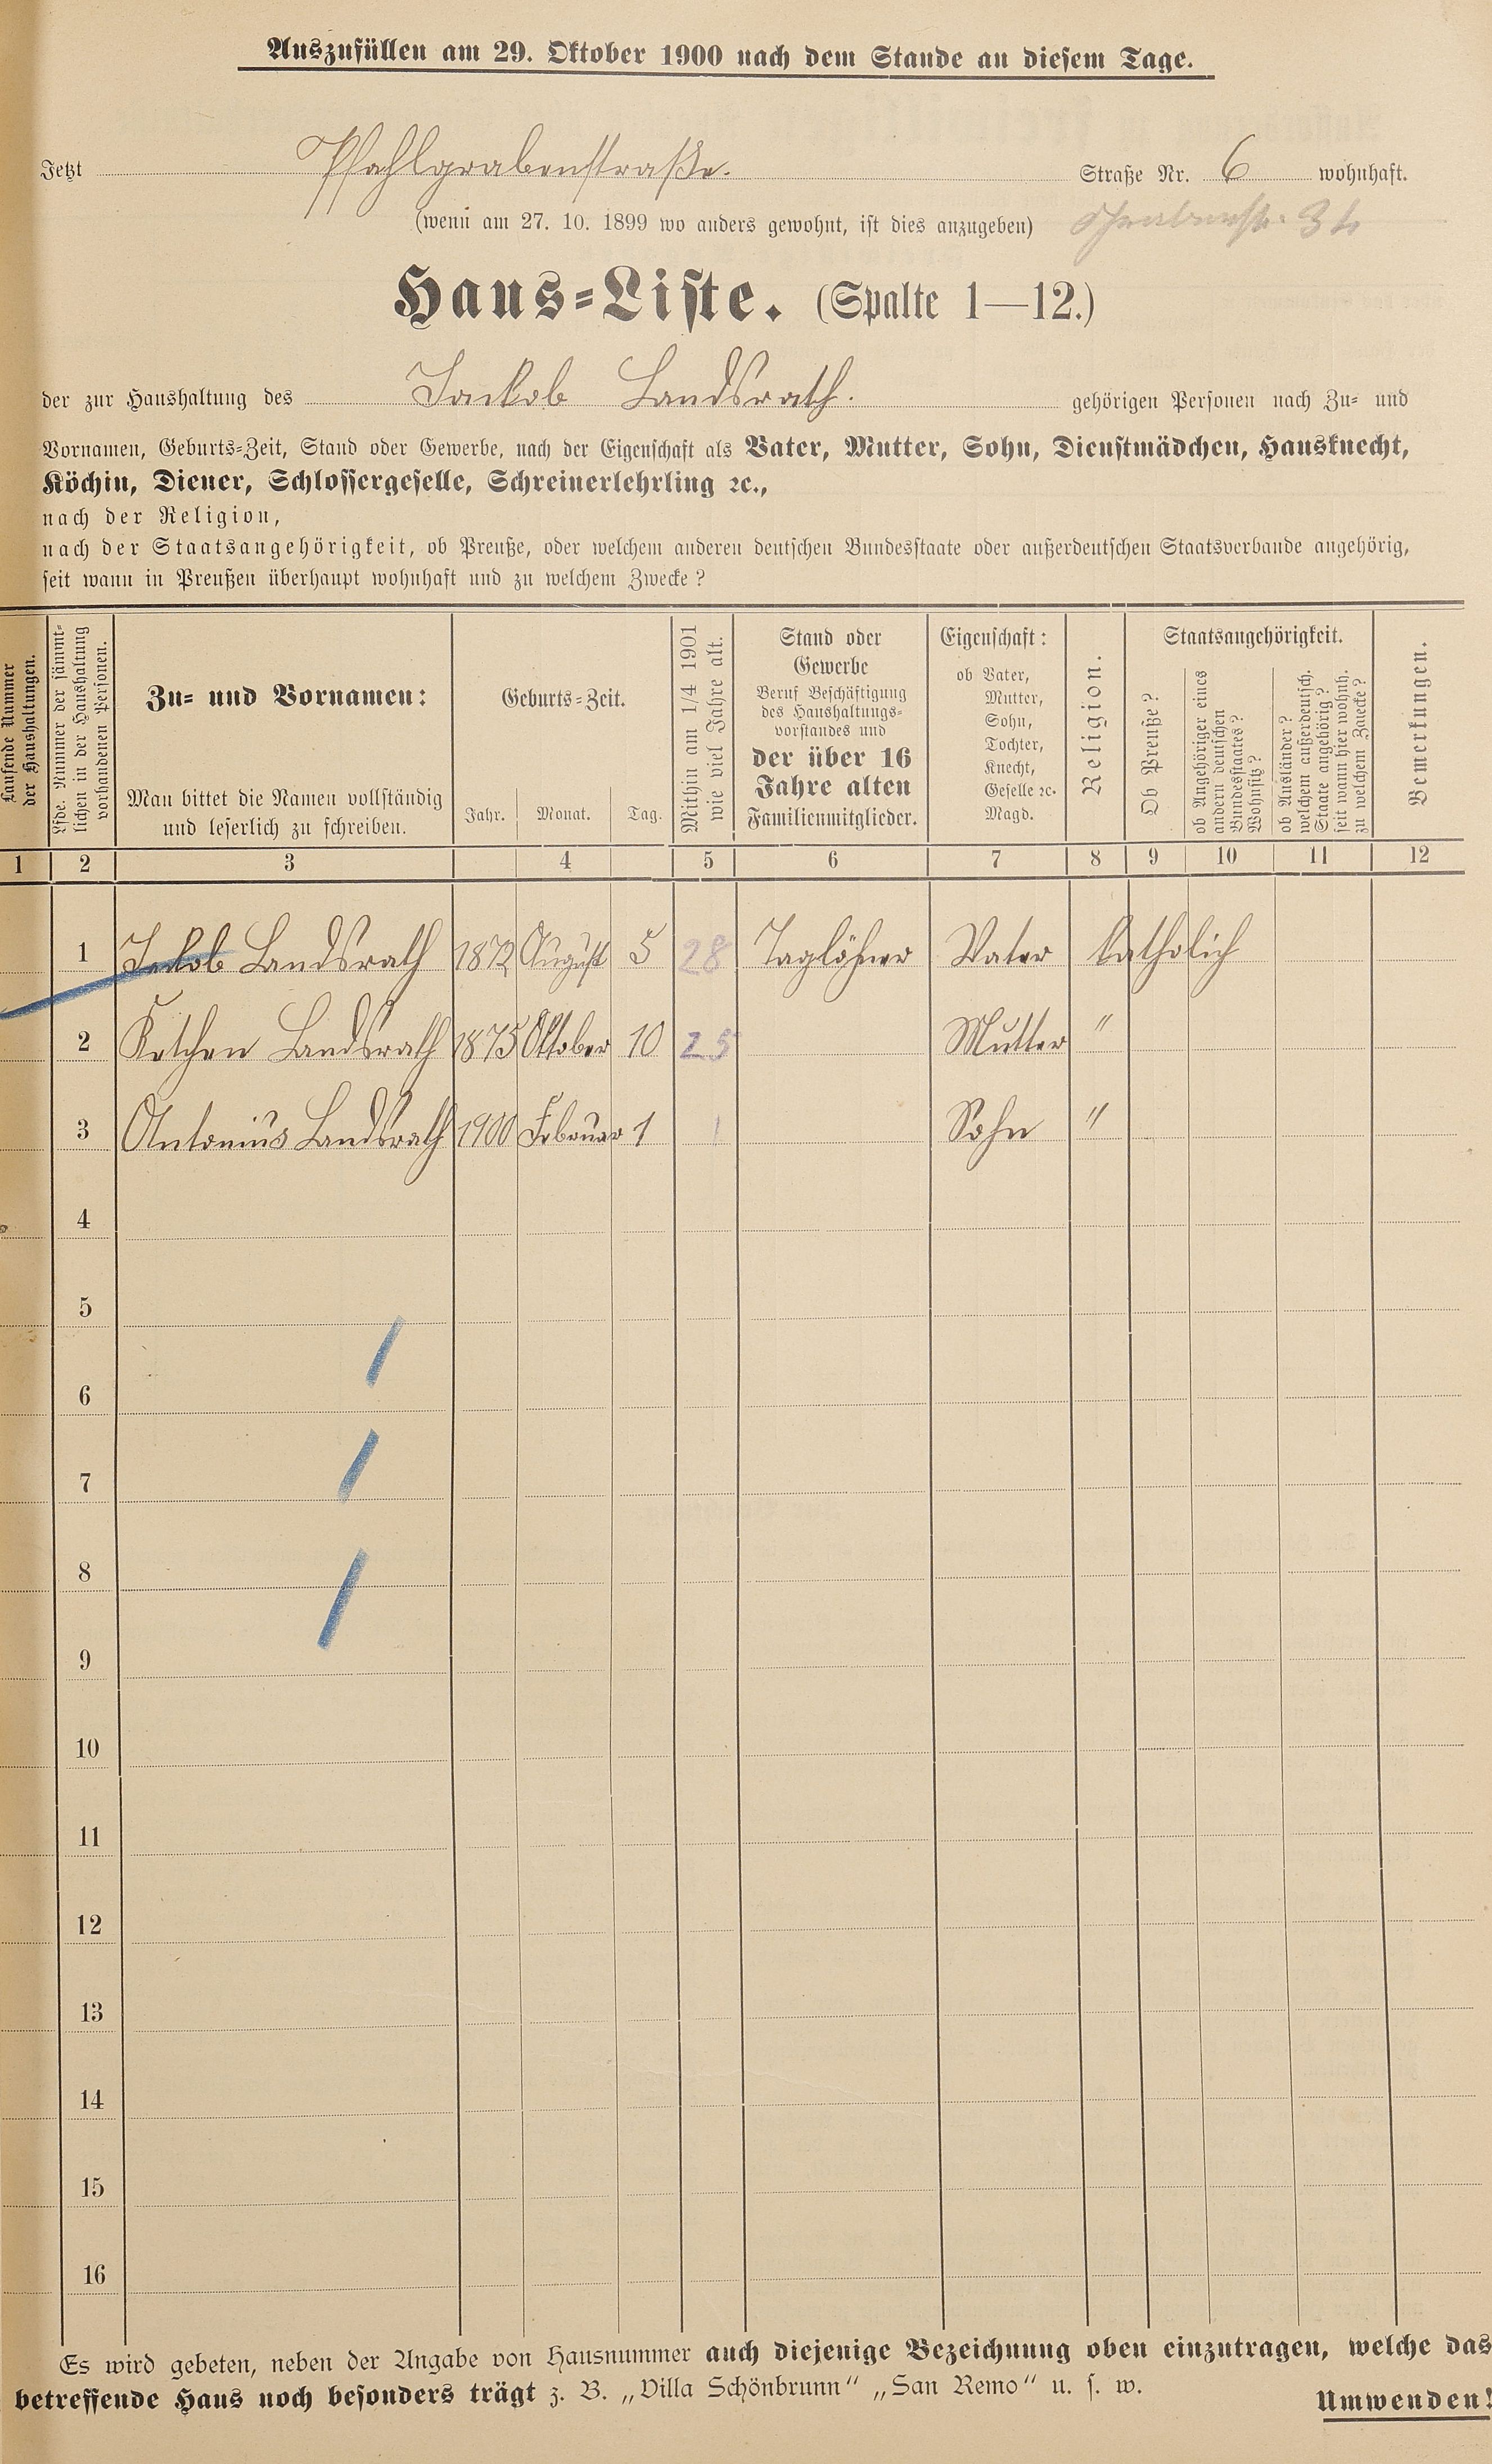 Auszufüllen am 29. Oktober 1900 nach dem Stande an diesem Tage.
Jetzt Pfahlgrabenstraße. Straße Nr. 6 wohnhaft.
(wenn am 27. 10. 1899 wo anders gewohnt, ist dies anzugeben)
Haus=Liste. (Spalte 1—12.)
der zur Haushaltung des Jackob Landsrath. gehörigen Personen nach Zu= und
Vornamen, Geburts=Zeit, Stand oder Gewerbe, nach der Eigenschaft als Vater, Mutter, Sohn, Dienstmädchen, Hausknecht,
Köchin, Diener, Schlossergeselle, Schreinerlehrling ꝛc.,
nach der Religion,
nach der Staatsangehörigkeit, ob Preuße, oder welchem anderen deutschen Bundesstaate oder außerdeutschen Staatsverbande angehörig,
seit wann in Preußen überhaupt wohnhaft und zu welchem Zwecke?
Laufende Nummer
der Haushaltungen.
Lfde. Nummer der sämmt-
lichen in der Haushaltung
vorhandenen Personen.
Zu= und Vornamen:
Man bittet die Namen vollständig
und leserlich zu schreiben.
Geburts=Zeit.
Jahr. Monat. Tag.
Mithin am 1/4 1901
wie viel Jahre alt.
Stand oder
Gewerbe
Beruf Beschäftigung
des Haushaltungs=
vorstandes und
der über 16
Jahre alten
Familienmitglieder.
Eigenschaft:
ob Vater,
Mutter,
Sohn,
Tochter,
Knecht,
Geselle ꝛc.
Magd.
Religion.
Staatsangehörigkeit.
Ob Preuße?
ob Angehöriger eines
andern deutschen
Bundesstaates?
Wohnsitz?
ob Ausländer?
welchem außerdeutsch.
Staate angehörig?
seit wann hier wohnh.
zu welchem Zwecke?
Bemerkungen.
1 2 3 4 5 6 7 8 9 10 11 12
1 Jakob Landsrath 1872 August 5 28 Taglöhner Vater katholich
2 Ketchen Landsrath 1875 Oktober 10 25 Mutter "
3 Antonius Landsrath 1900 Februar 1 1 Sohn "
4
5
6
7
8
9
10
11
12
13
14
15
16
Es wird gebeten, neben der Angabe von Hausnummer auch diejenige Bezeichnung oben einzutragen, welche das
betreffende Haus noch besonders trägt z. B. „Villa Schönbrunn" „San Remo" u. s. w.
Umwenden!